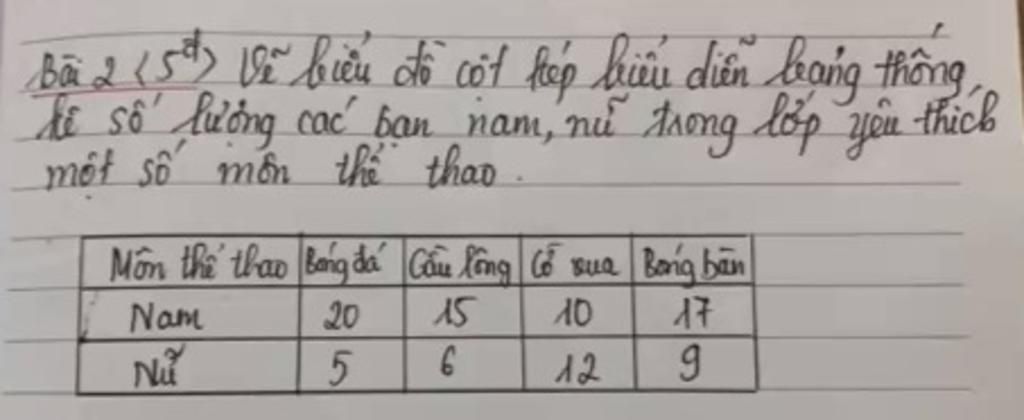 Bài 2 (5đ) Vẽ biểu đồ cột kép biểu diễn bảng thống
kê số lượng các bạn nam, nữ trong lớp yêu thích
một số môn thể thao.
Môn thể thao Bóng đá Cầu lông Cờ vua Bóng bàn
Nam 20 15 10 17
Nữ 5 6 12 9